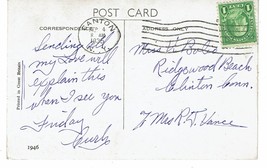 POST CARD
CORRESPONDENCE
ADDRESS ONLY
SCRANTON
Sending all
my love will
explain this
when I see you
Friday
Miss
Ridgewood Beach
Clinton Conn.
% Mrs R. T. Vance
Printed in Great Britain
1946